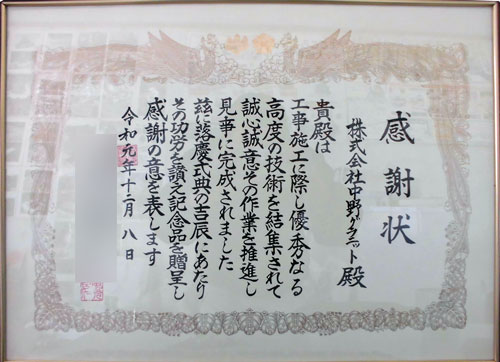 感謝状
株式会社中野グラニット殿
貴殿は
工事施工に際し優秀なる
高度の技術を結集されて
誠心誠意その作業を推進し
見事に完成されました
茲に落慶式典の吉辰にあたり
その功労を讃え記念品を贈呈し
感謝の意を表します
令和元年十二月八日